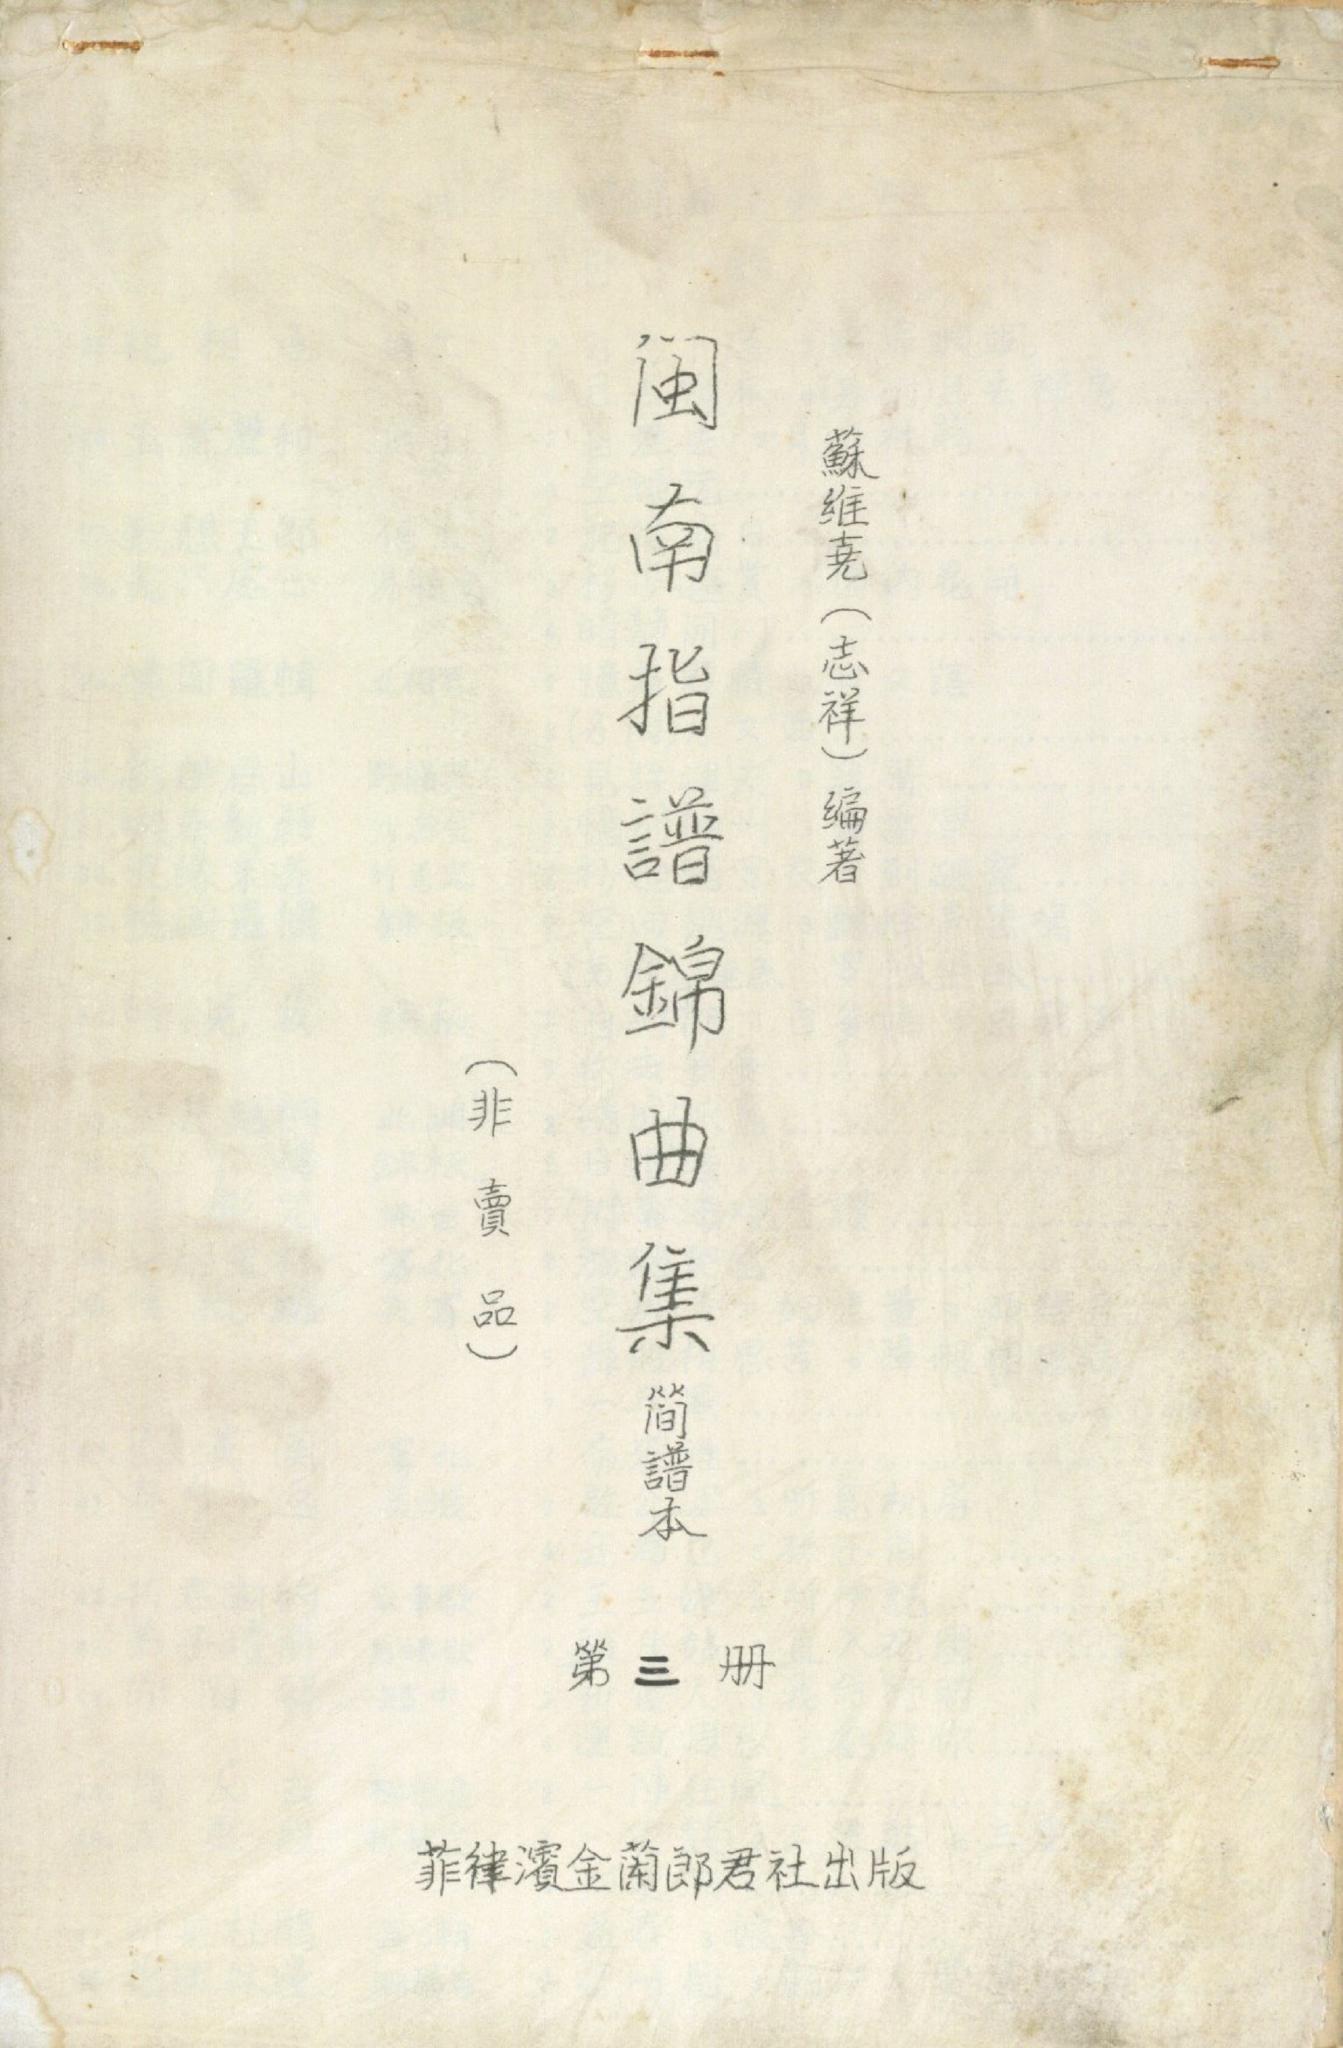 蘇維尭(志祥)編著
闽南指譜錦曲集 简譜本
(非賣品)
第三册
菲律濱金蘭郎君社出版